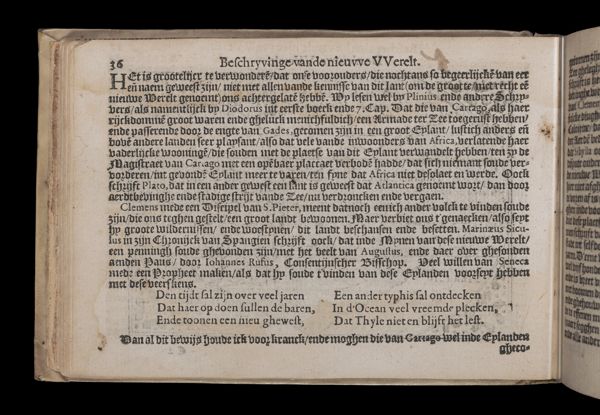 36 Beschryvinge vande nieuvve VVerelt.
HEt is grootelijcx te verwonderē/dat onse voorouders/die nochtans so begeerlijckē van eer
eñ naem geweest zijn/ niet met allen vande kennisse van dit lant (om de groote/met recht eē
nieuwe Werelt genoemt) ons achtergelatē hebbē. Wy lesen wel by Plinius ende andere Schry-
vers/als namentlijck by Diodorus int eerste boeck ende 7. Cap. Dat die van Cartago als haer
rijckdommē groot waren ende ghelück menichfuldich/een Armade ter Zee toegerust hebben/
ende passerende door de engte van Gades, gecomen zijn in een groot Eylant/ lustich anders eñ
bovē andere landen seer playsant/also dat vele vande inwoonders van Africa, verlatende haer
vaderlijcke wooningē/die souden met de plaetse van dit Eylant verwandelt hebben/ten zy de
Magistraet van Cartago met een opēbaer placcaet verbodē hadde/dat sich niemant soude ver-
vorderen/int gevondē Eylant meer te varen/ten fyne dat Africa niet desolaet en werde. Oock
schrijft Plato, dat in een ander gewest een lant is geweest dat Atlantica genoemt wort/ dan door
aerdtbevinghe ende stadige strijt vande Zee/nu verdroncken ende vergaen.
Clemens mede een Discipel van S. Pieter, meint datnoch eenich ander volck te vinden soude
zijn/die ons teghen gestelt/een groot landt bewoonen. Maer verbiet ons t'genaecken/also seyt
hy groote wildernissen/ ende woestynen/ dit landt beschansen ende besetten. Marinæus Sicu-
lus in zijn Chronijck van Spangien schrijft oock/dat inde Mynen van dese nieuwe Werelt/
een penningh soude ghevonden zijn/met het beelt van Augustus, ende daer over ghesonden
aenden Paus/ door Iohannes Rufus, Consentijnscher Bisschop. Veel willen van Seneca
mede een Propheet maken/als dat hy soude t'vinden van dese Eylanden voorseyt hebben
met dese veerskens.
Den tijdt sal zijn over veel jaren
Dat haer op doen sullen de baren,
Ende toonen een nieu ghewest,
Een ander typhis sal ontdecken
In d'Ocean veel vreemde plecken,
Dat Thyle niet en blijft het lest.
Dan al dit bewijs houde ick voor kranck/ende moghen die van Cartago wel inde Eylanden
gheco-